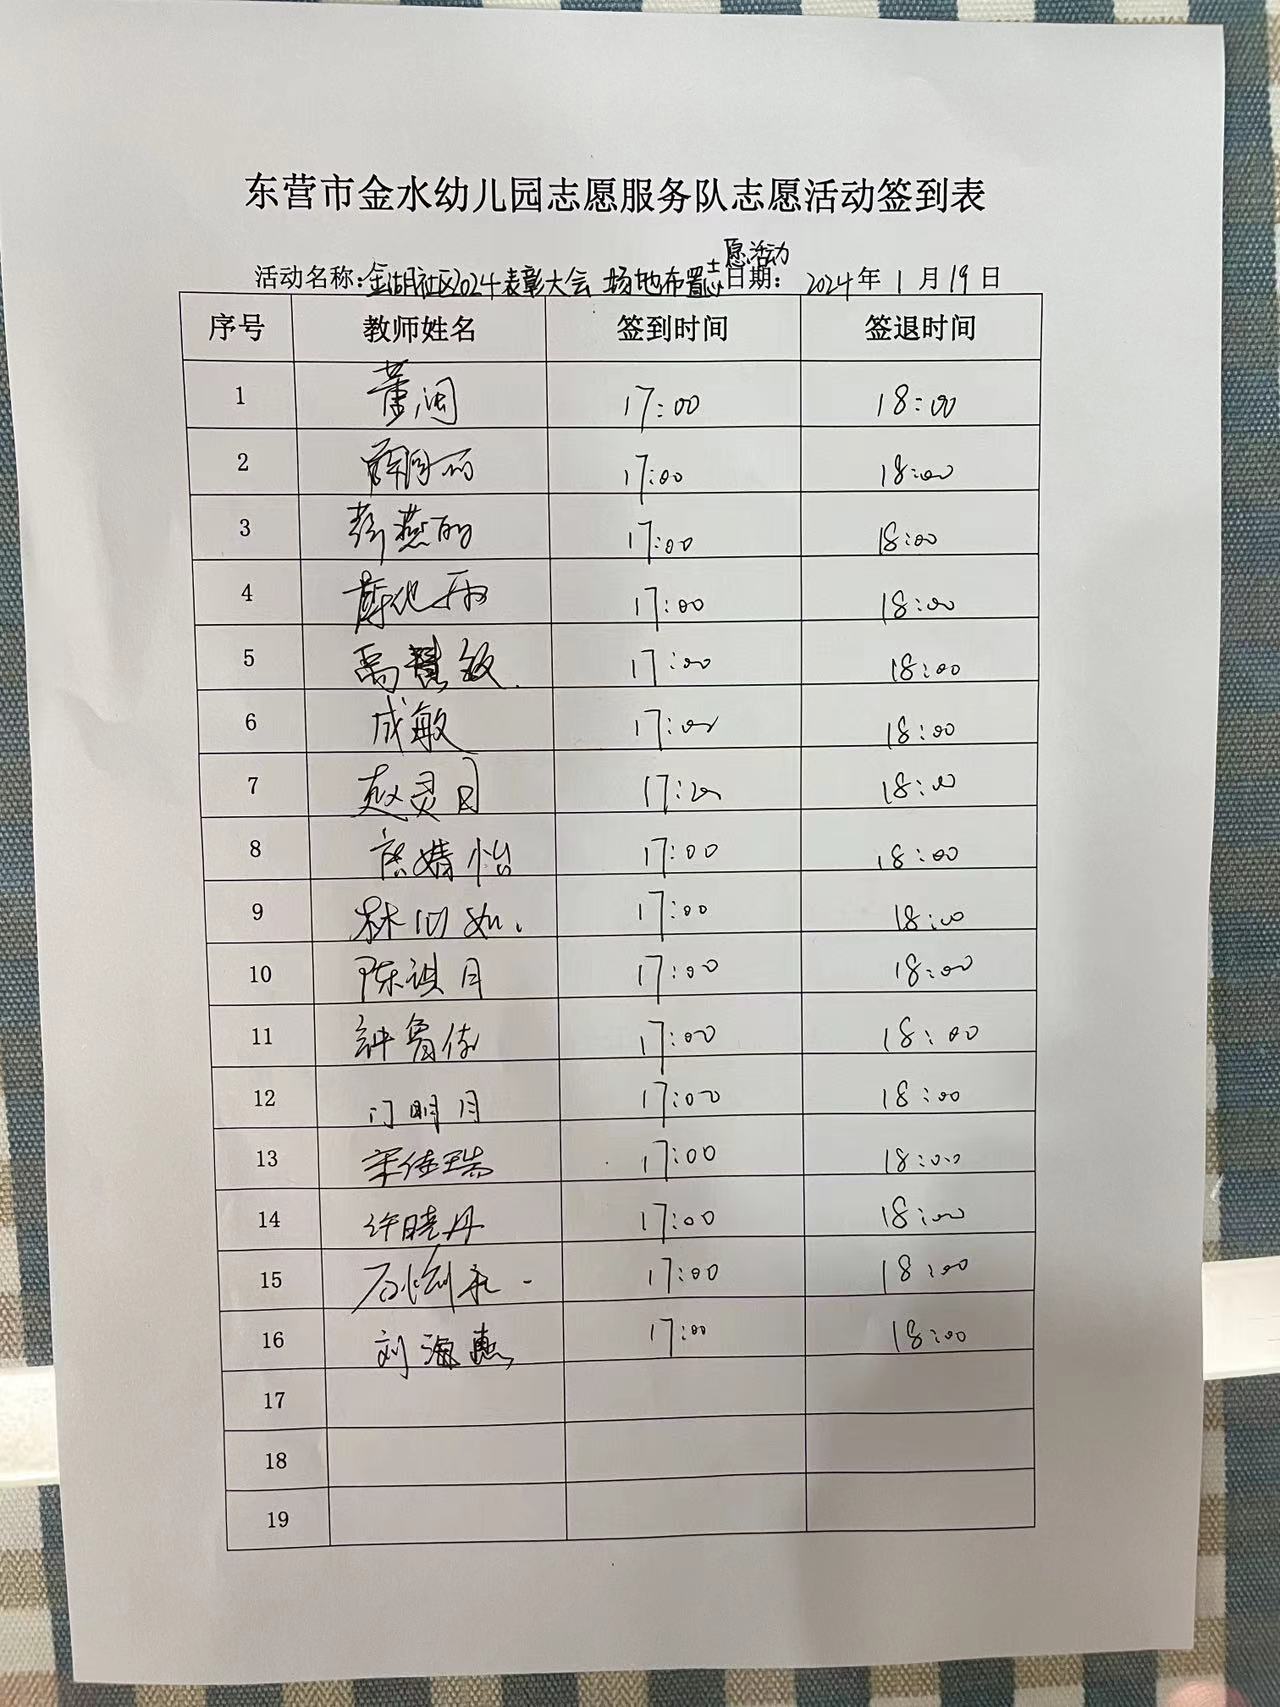 东营市金水幼儿园志愿服务队志愿活动签到表
活动名称:金湖社区2024表彰大会 场地布置志愿活动 日期: 2024年1月19日
序号 教师姓名 签到时间 签退时间
1 17:00 18:00
2 17:00 18:00
3 17:00 18:00
4 17:00 18:00
5 禹慧敏 17:00 18:00
6 成敏 17:00 18:00
7 赵灵 17:00 18:00
8 婧怡 17:00 18:00
9 林如 17:00 18:00
10 陈祺月 17:00 18:00
11 钟鲁依 17:00 18:00
12 门明月 17:00 18:00
13 宋佳瑞 17:00 18:00
14 许晓丹 17:00 18:00
15 17:00 18:00
16 刘海燕 17:00 18:00
17
18
19